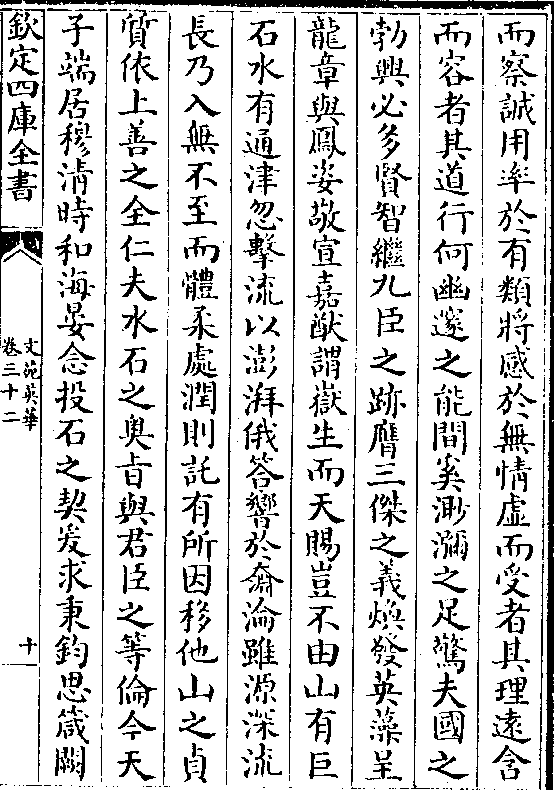 而察誠用率於有類將感於無情虛而受者其理遠含
而容者其道行何幽邃之能間奚渺瀰之足驚夫國之
勃興必多賢智繼九臣之跡膺三傑之義煥發英藻呈
龍章與鳳姿敬宣嘉猷謂嶽生而天賜豈不由山有巨
石水有通津忽擊流以澎湃俄答響於奫淪雖源深流
長乃入無不至而體柔處潤則託有所因移他山之貞
質依上善之全仁夫水石之奥旨與君臣之等倫今天
子端居穆清時和海晏念投石之契爰求秉鈞思箴闕
欽定四庫全書
文苑英華
卷三十二
十